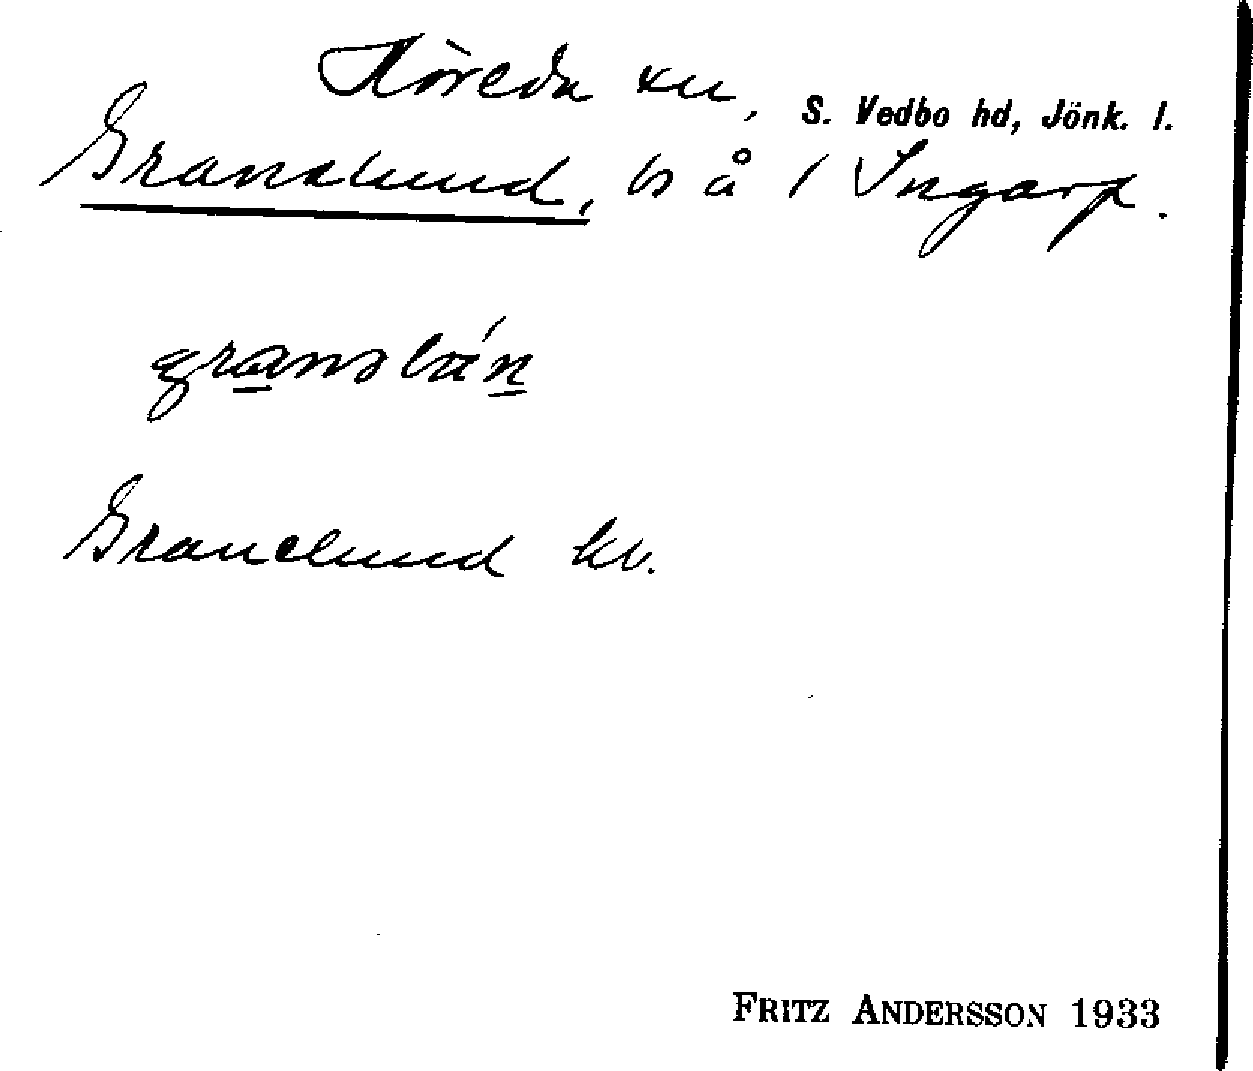 Höreda sn, S. Vedbo hd, Jönk. l.
Granslund, ls å 1 Ingarp.
Granelund kv.
FRITZ ANDERSSON 1933